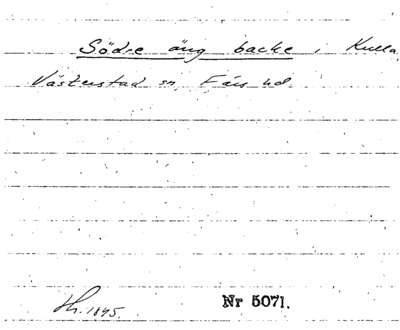 Södre äng backe i Kulla,
Västerstad sn, Färs hd.
Hh. 1845.
Nr 5071.